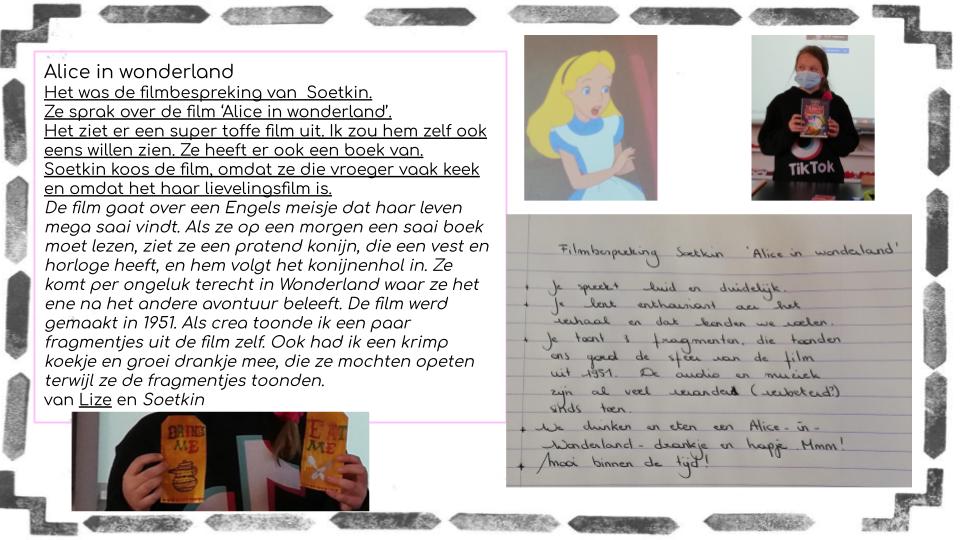 Alice in wonderland
Het was de filmbespreking van  Soetkin.
Ze sprak over de film ‘Alice in wonderland’.
Het ziet er een super toffe film uit. Ik zou hem zelf ook
eens willen zien. Ze heeft er ook een boek van.
Soetkin koos de film, omdat ze die vroeger vaak keek
en omdat het haar lievelingsfilm is.
De film gaat over een Engels meisje dat haar leven
mega saai vindt. Als ze op een morgen een saai boek
moet lezen, ziet ze een pratend konijn, die een vest en
horloge heeft, en hem volgt het konijnenhol in. Ze
komt per ongeluk terecht in Wonderland waar ze het
ene na het andere avontuur beleeft. De film werd
gemaakt in 1951. Als crea toonde ik een paar
fragmentjes uit de film zelf. Ook had ik een krimp
koekje en groei drankje mee, die ze mochten opeten
terwijl ze de fragmentjes toonden.
van Lize en Soetkin
DRINK
ME
EAT
ME
TikTok
Filmbespreking Soetkin 'Alice in wonderland'
+ Je spreekt luid en duidelijk.
+ Je bent enthousiast over het
verhaal en dat konden we voelen.
+ Je toont 3 fragmenten, die toonden
ons goed de sfeer van de film
uit 1951. De audio en muziek
zijn al veel veranderd (verbeterd?)
sinds toen.
+ We drinken en eten een Alice-in-
Wonderland-drankje en hapje. Mmm!
+ Mooi binnen de tijd!